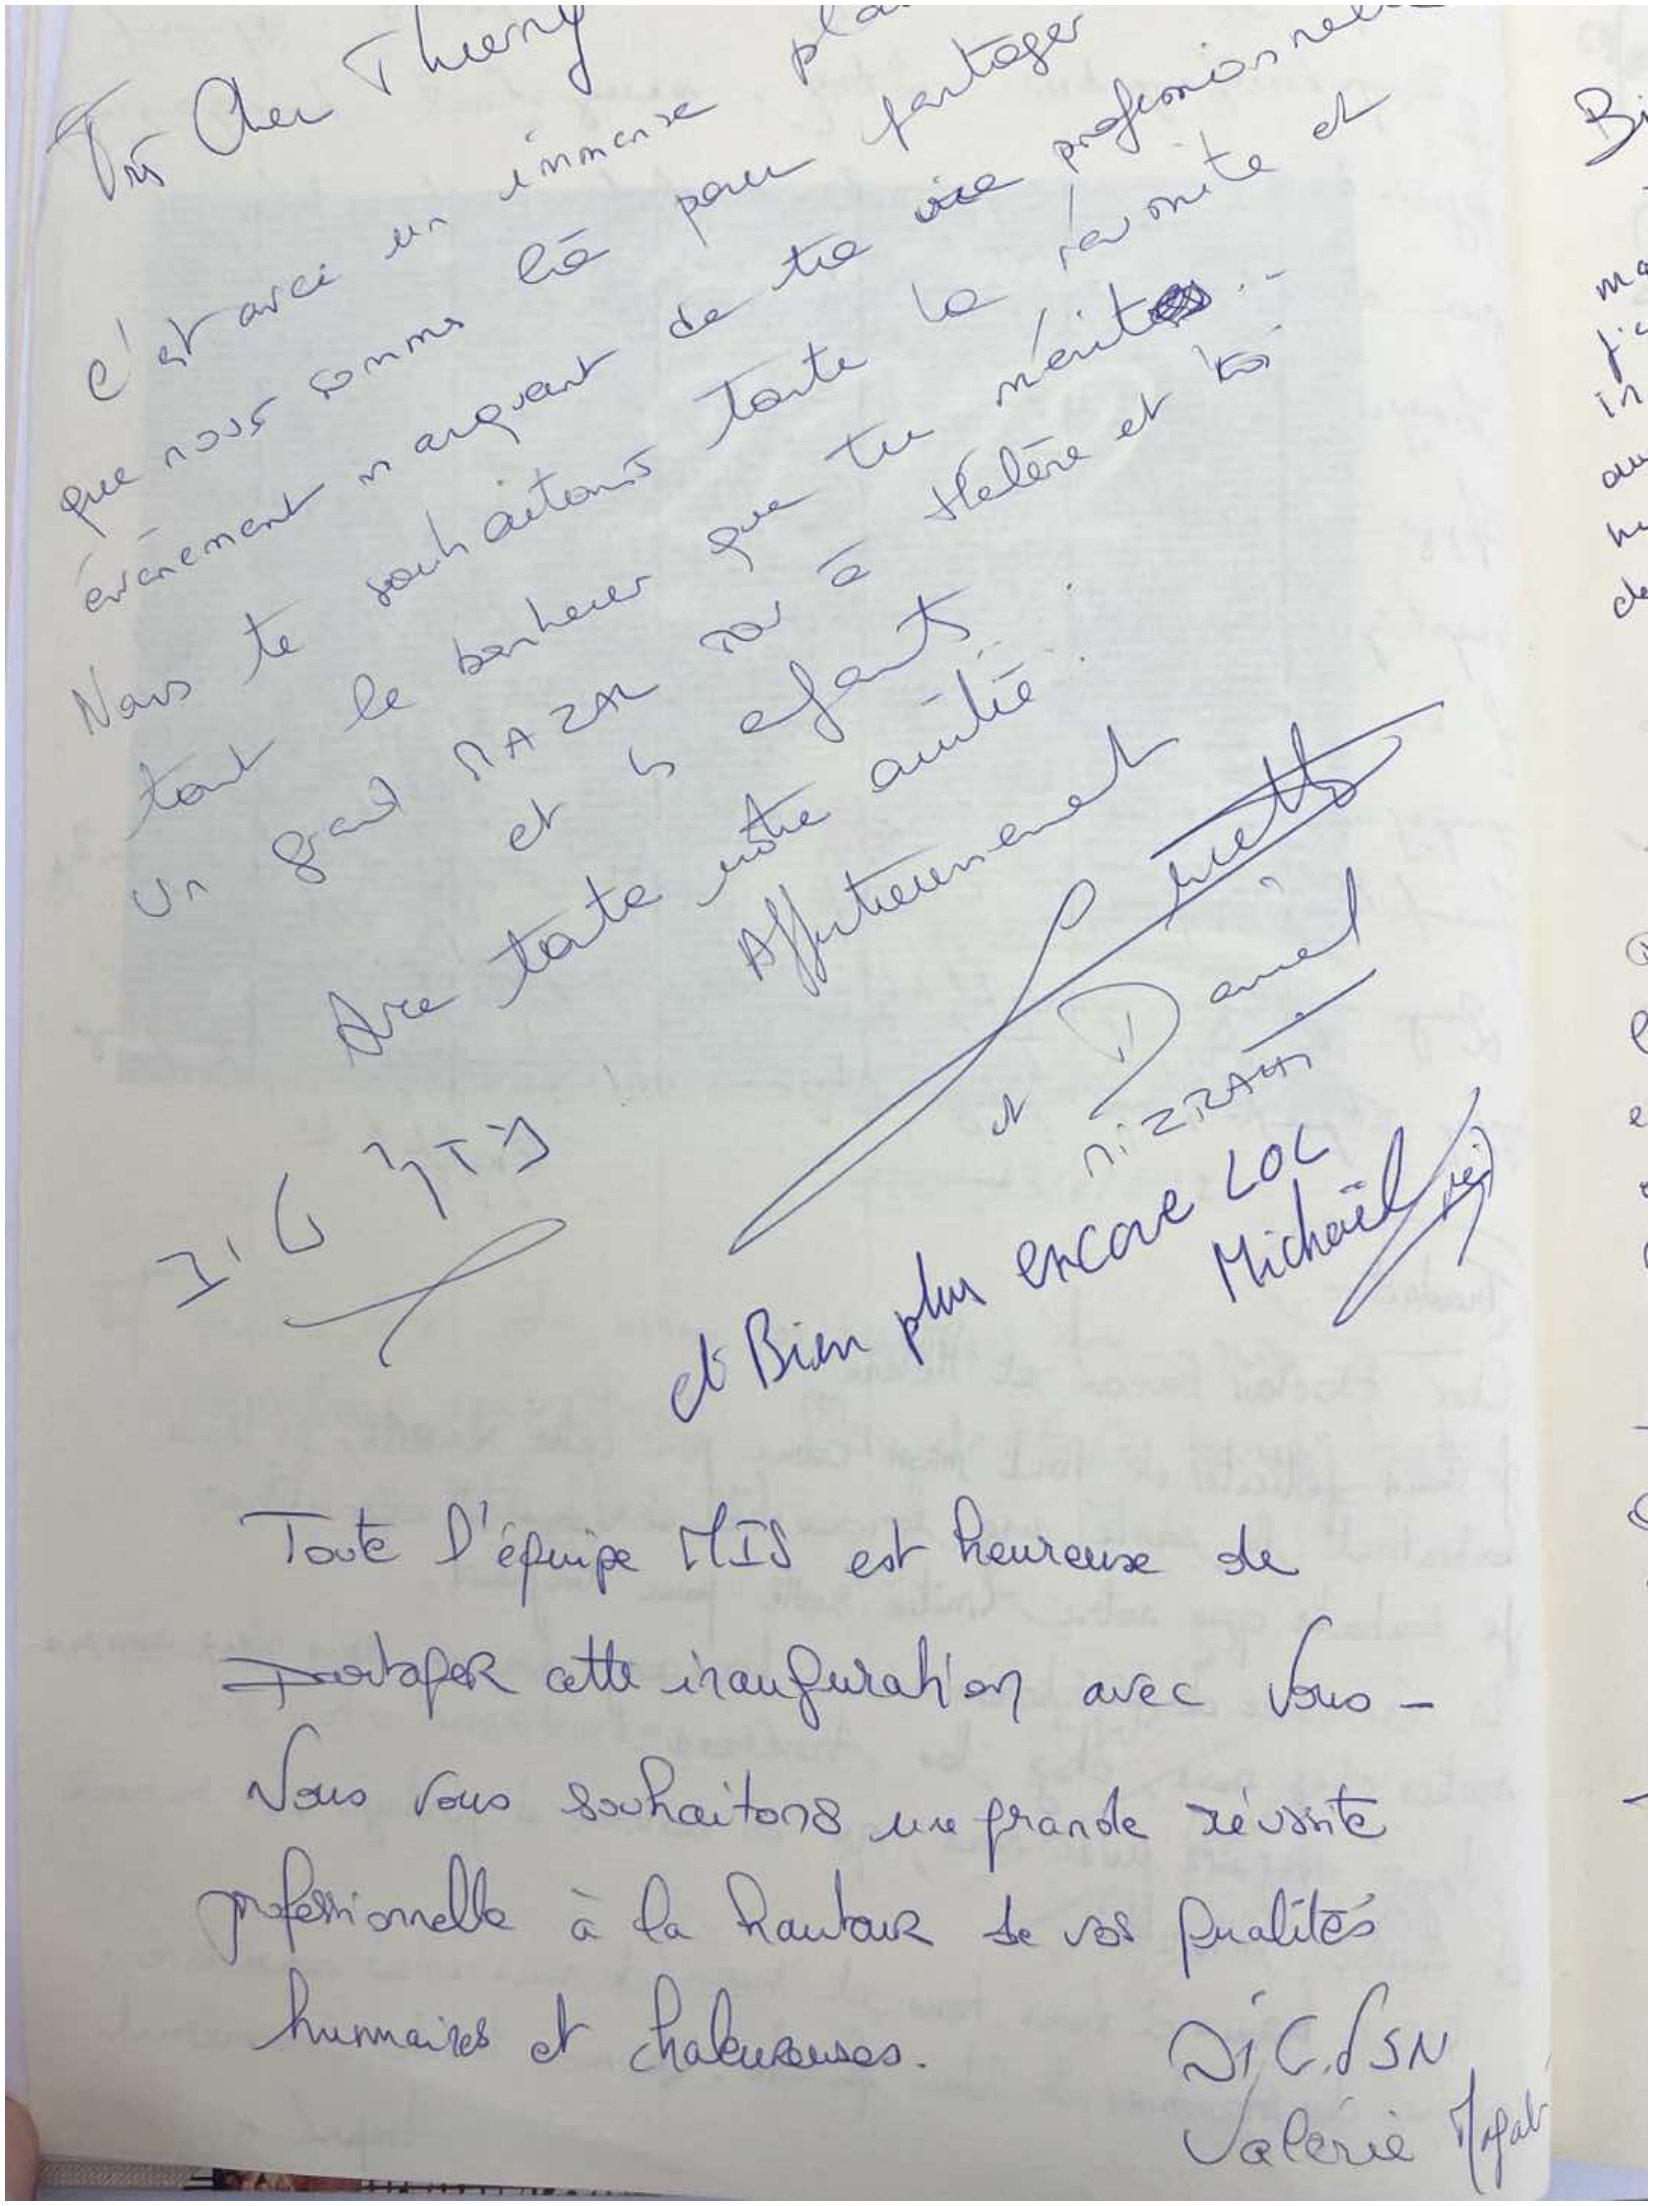 Très Cher Thierry
C'est avec un immense
que nous sommes là pour partager
événement marquant de ta vie professionnelle
Nous te souhaitons toute la réussite et
tout le bonheur que tu mérites...
Un grand MAZAL TOV à Hélène et toi
et les enfants
Avec toute notre amitié
Affectueusement
et Daniel
MIZRAHI
מזל טוב
et Bien plus encore LOL
Michaël
Toute l'équipe MIS est heureuse de
partager cette inauguration avec vous -
Nous vous souhaitons une grande réussite
professionnelle à la hauteur de vos qualités
humaines et chaleureuses.
Valérie